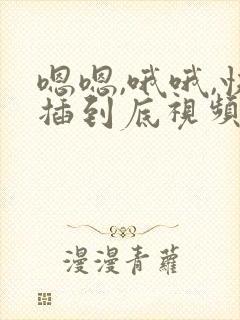 嗯嗯,哦哦,快
插到底視頻
漫漫青蘿